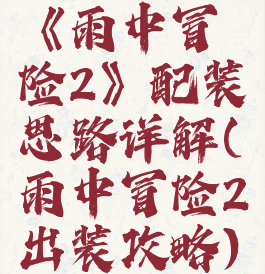 《雨中冒
险2》配装
思路详解(
雨中冒险2
出装攻略)